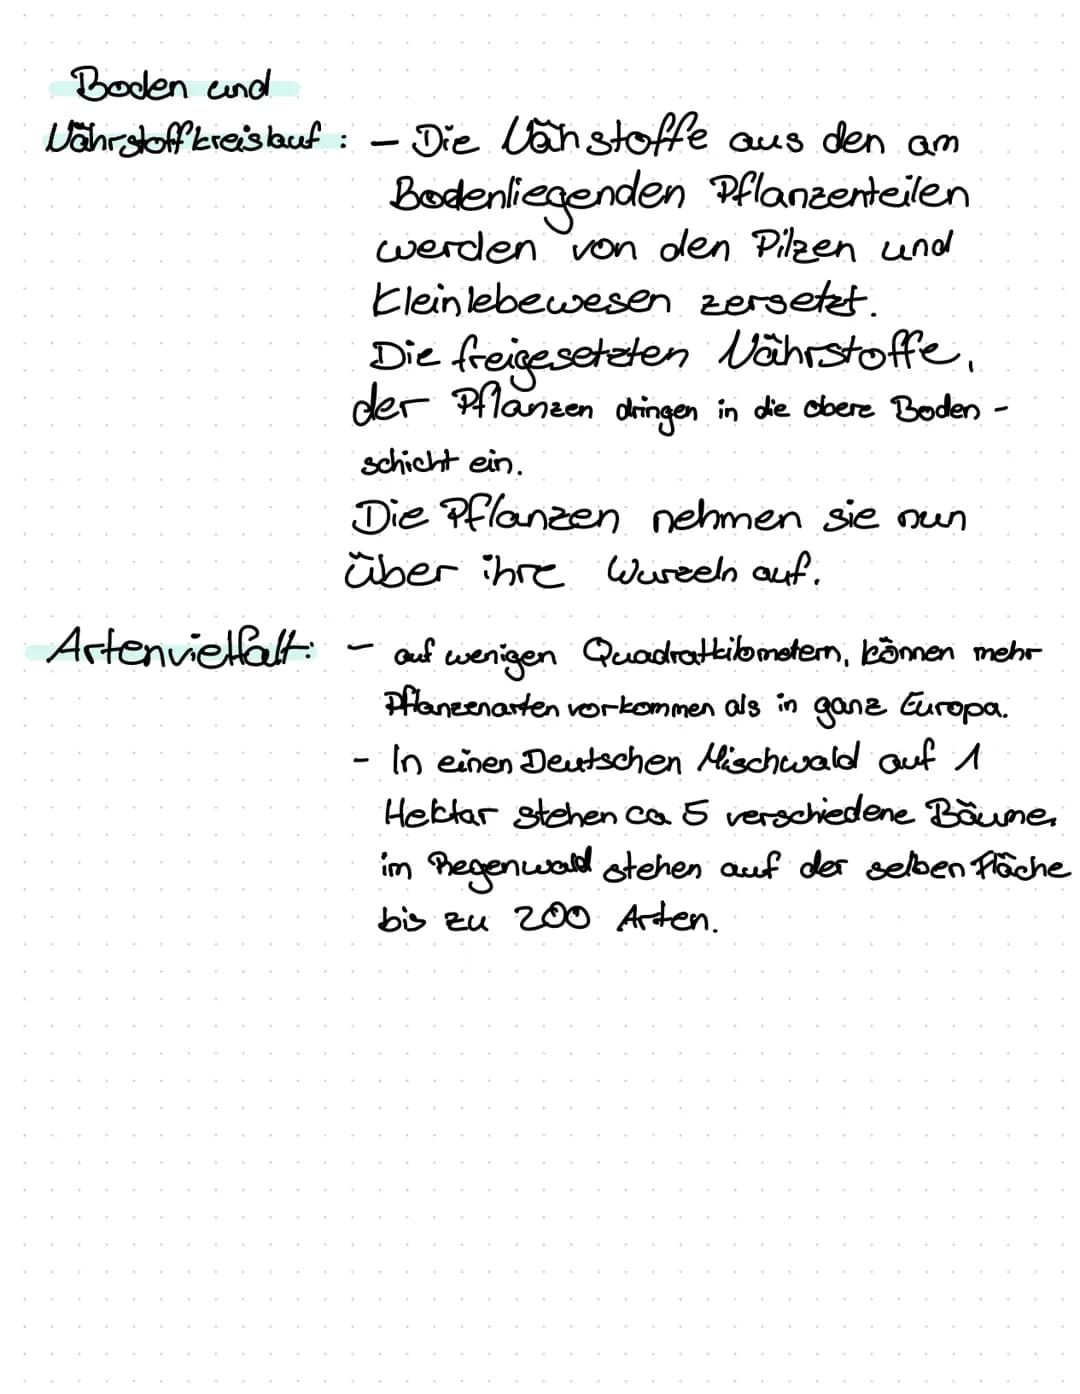 Boden und
Nährstoffkreislauf : - Die Nähstoffe aus den am
Bodenliegenden Pflanzenteilen
werden von den Pilzen und
Kleinlebewesen zersetzt.
Die freigesetzten Nährstoffe,
der Pflanzen dringen in die obere Boden -
schicht ein.
Die Pflanzen nehmen sie nun
über ihre Wurzeln auf.
Artenvielfalt: - auf wenigen Quadratkilometern, können mehr
Pflanzenarten vorkommen als in ganz Europa.
- In einen Deutschen Mischwald auf 1
Hektar stehen ca 5 verschiedene Bäume,
im Regenwald stehen auf der selben Fläche
bis zu 200 Arten.